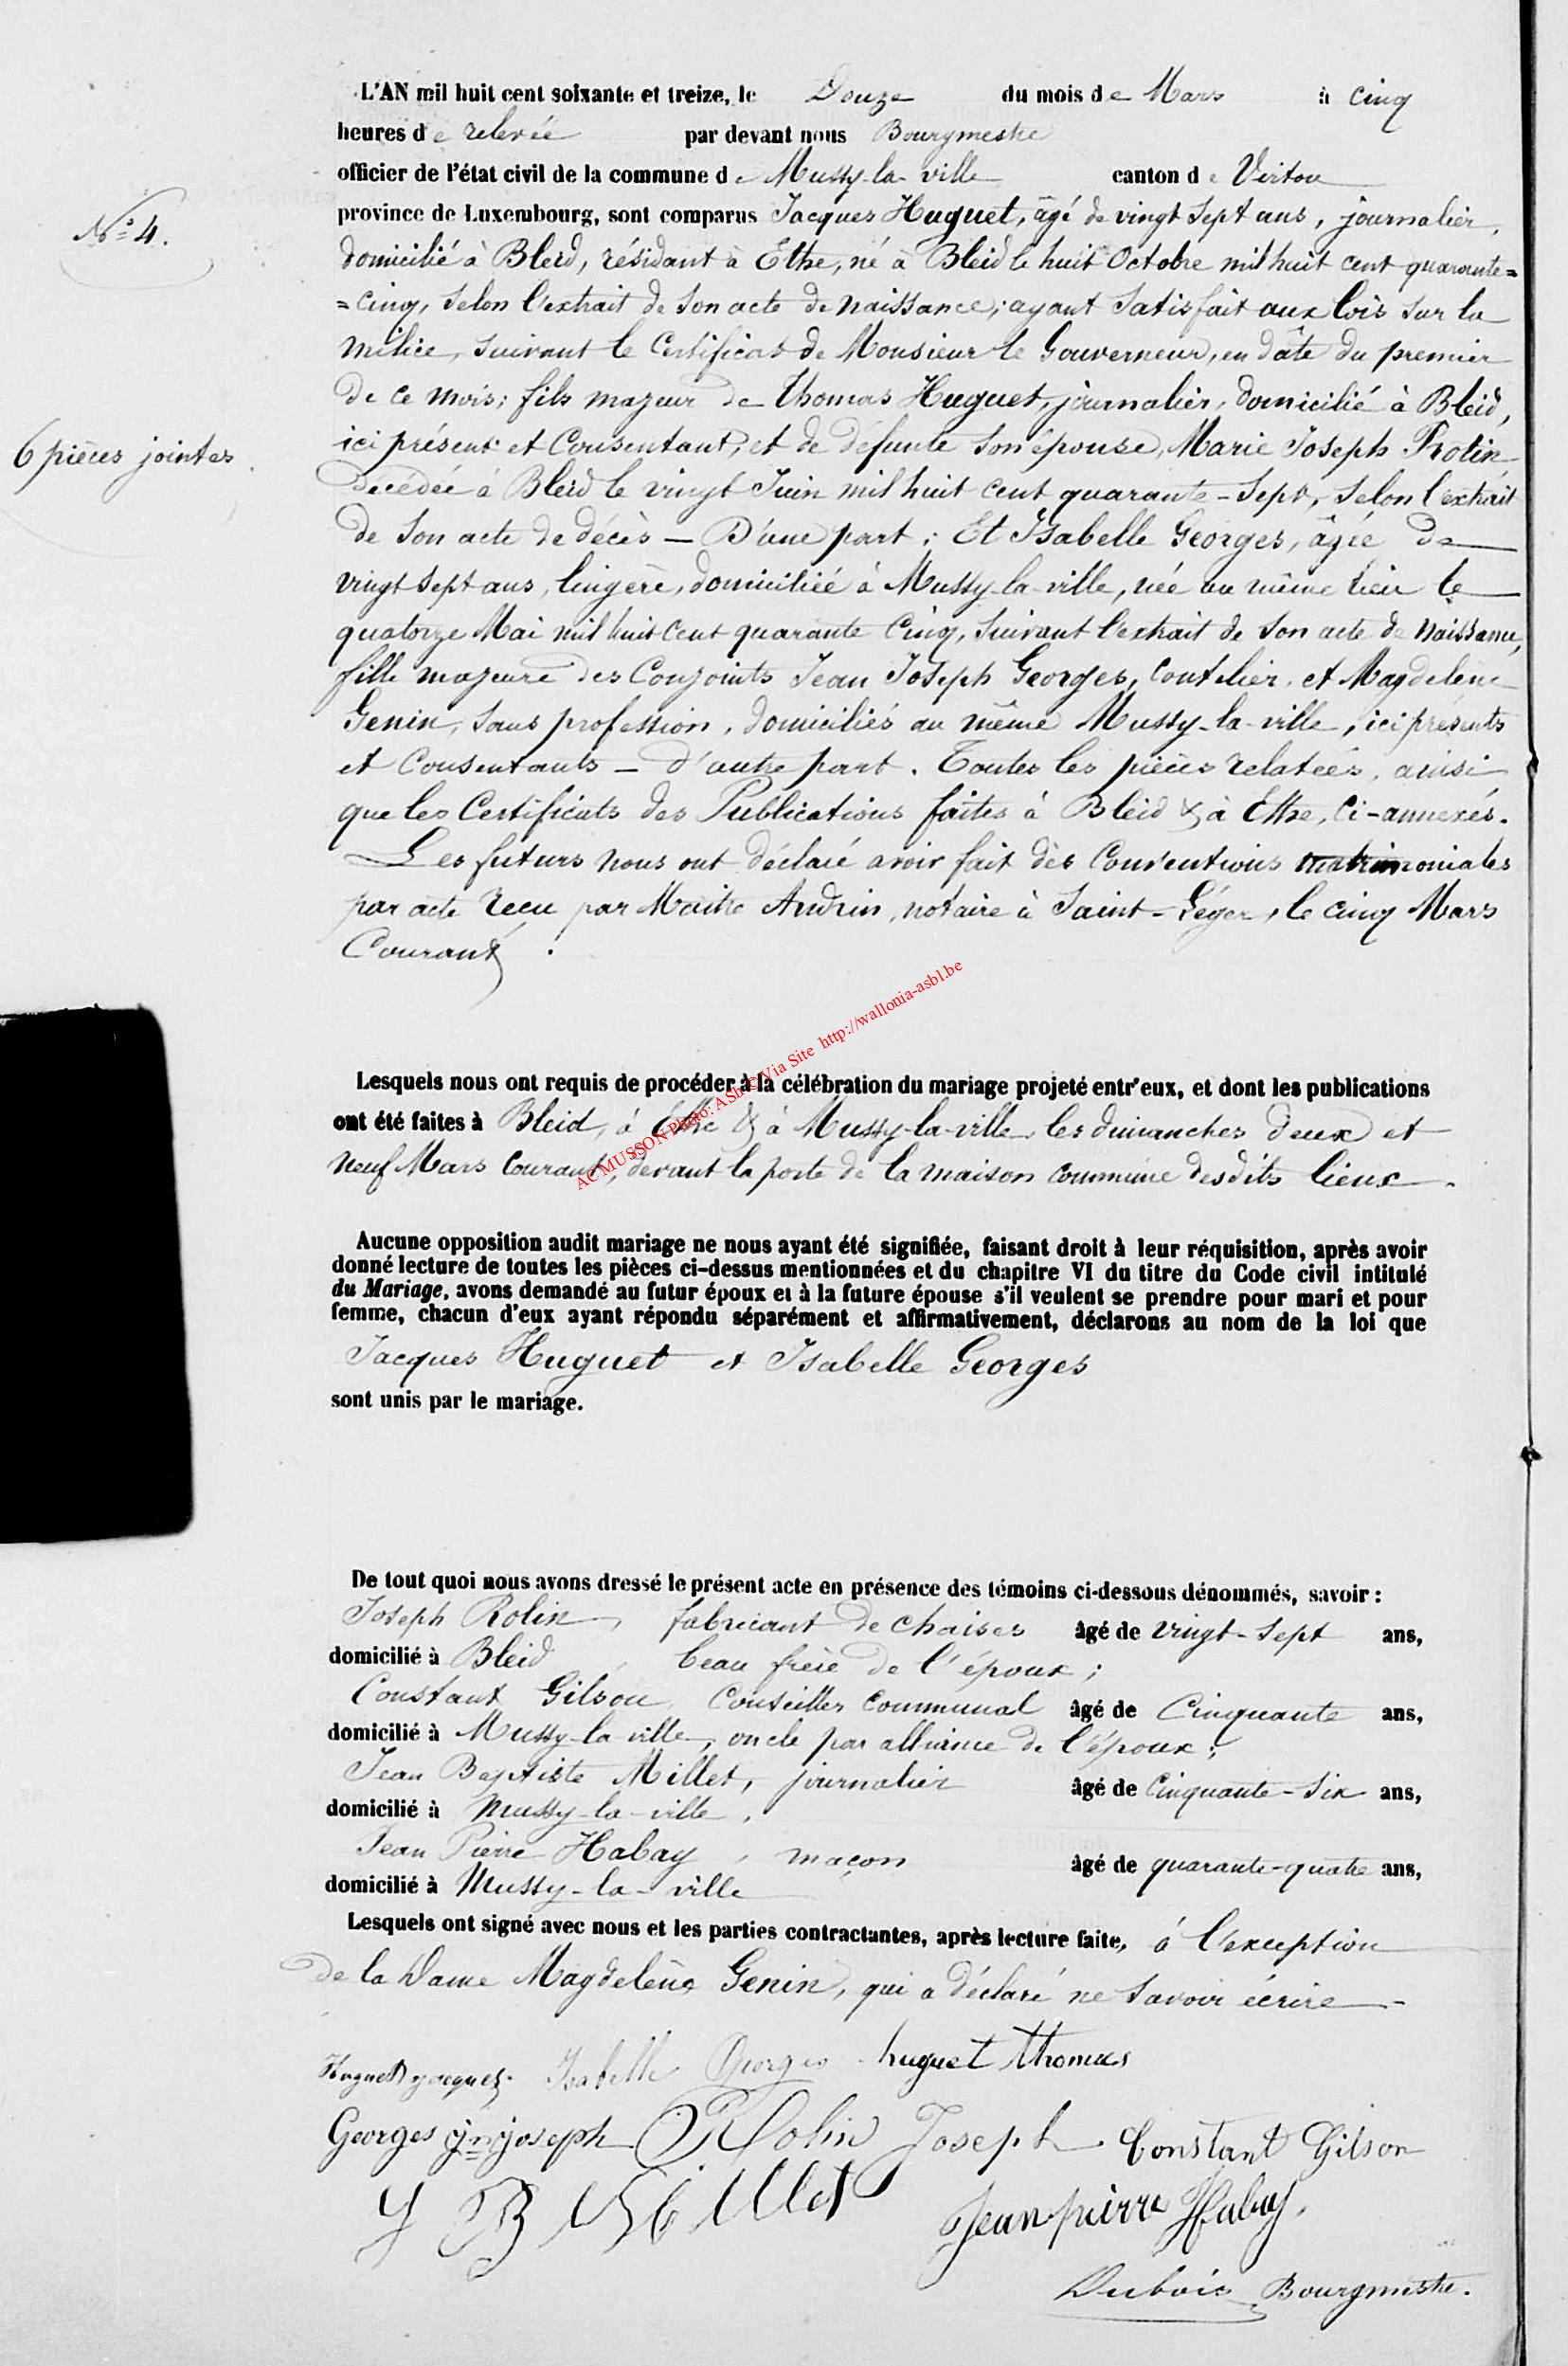 L'AN mil huit cent soixante et treize, le Douze du mois de Mars à cinq
heures de relevée par devant nous Bourgmestre
officier de l'état civil de la commune de Mussy-la-ville canton de Virton
province de Luxembourg, sont comparus Jacques Huguet, âgé de vingt sept ans, journalier,
N° 4.
domicilié à Bleid, résidant à Ethe, né à Bleid le huit Octobre mil huit cent quarante=
=cinq, selon l'extrait de son acte de naissance; ayant satisfait aux lois sur la
milice, suivant le Certificat de Monsieur le Gouverneur, en dâte du premier
de ce mois; fils majeur de Thomas Huguet, journalier, domicilié à Bleid,
6 pièces jointes
ici présent et Consentant, et de défunte son épouse, Marie Joseph Rolin
décédée à Bleid le vingt Juin mil huit cent quarante-sept, selon l'extrait
de son acte de décès — D'une part; Et Isabelle Georges, âgée de
vingt sept ans, lingère, domiciliée à Mussy-la-ville, née au même lieu le
quatorze Mai mil huit cent quarante Cinq, suivant l'extrait de son acte de naissance,
fille majeure des Conjoints Jean Joseph Georges, coutelier, et Magdelène
Genin, sans profession, domiciliés au même Mussy-la-ville, ici présents
et Consentants — d'autre part. Toutes les pièces relatées, ainsi
que les Certificats des Publications faites à Bleid & à Ethe, Ci-annexés.
Les futurs nous ont déclaré avoir fait des Conventions matrimoniales
par acte recu par Maitre Andrin, notaire à Saint-Léger, le cinq Mars
Courant.
AC MUSSON Photo: ASh © Via Site http://wallonia-asbl.be
Lesquels nous ont requis de procéder à la célébration du mariage projeté entr'eux, et dont les publications
ont été faites à Bleid, à Ethe & à Mussy-la-ville les dimanches deux et
neuf Mars courant, devant la porte de la maison commune desdits lieux.
Aucune opposition audit mariage ne nous ayant été signifiée, faisant droit à leur réquisition, après avoir
donné lecture de toutes les pièces ci-dessus mentionnées et du chapitre VI du titre du Code civil intitulé
du Mariage, avons demandé au futur époux et à la future épouse s'il veulent se prendre pour mari et pour
femme, chacun d'eux ayant répondu séparément et affirmativement, déclarons au nom de la loi que
Jacques Huguet et Isabelle Georges
sont unis par le mariage.
De tout quoi nous avons dressé le présent acte en présence des témoins ci-dessous dénommés, savoir :
Joseph Rolin, fabricant de chaises âgé de vingt-sept ans,
domicilié à Bleid, beau frère de l'époux;
Constant Gilson, Conseiller communal âgé de Cinquante ans,
domicilié à Mussy-la-ville, oncle par alliance de l'époux;
Jean Baptiste Millet, journalier âgé de Cinquante-six ans,
domicilié à Mussy-la-ville,
Jean Pierre Habay, maçon âgé de quarante-quatre ans,
domicilié à Mussy-la-ville
Lesquels ont signé avec nous et les parties contractantes, après lecture faite, à l'exception
de la Dame Magdelène Genin, qui a déclaré ne savoir écrire
Huguet jacques. Isabelle Georges huguet thomas
Georges jn joseph Rolin Joseph Constant Gilson
J B Millet Jean pierre Habay.
Dubois Bourgmestre.